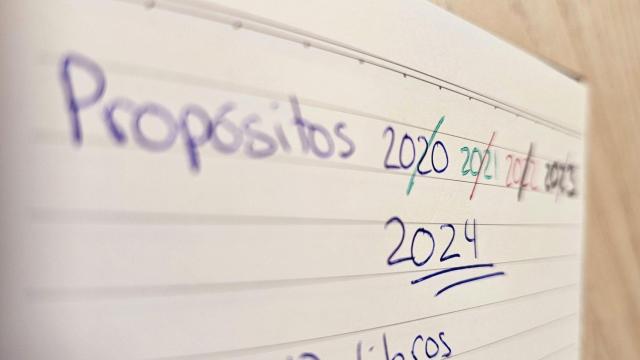 Propósitos 2020 2021 2022 2023
2024
libros